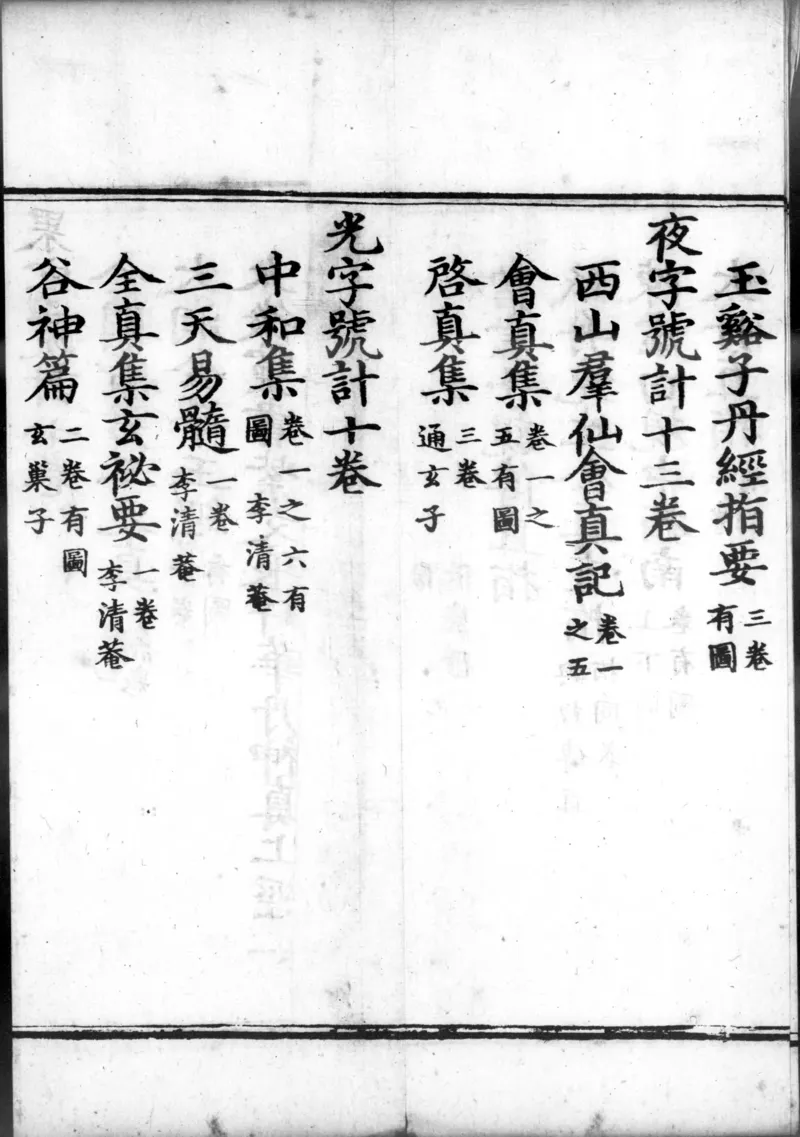 玉谿子丹經指要三卷有圖
夜字號計十三卷
西山羣仙會真記卷一之五
會真集卷一之五有圖
啓真集三卷通玄子
光字號計十卷
中和集卷一之六有圖李清菴
三天易髓一卷李清菴
全真集玄祕要一卷李清菴
谷神篇二卷有圖玄巢子